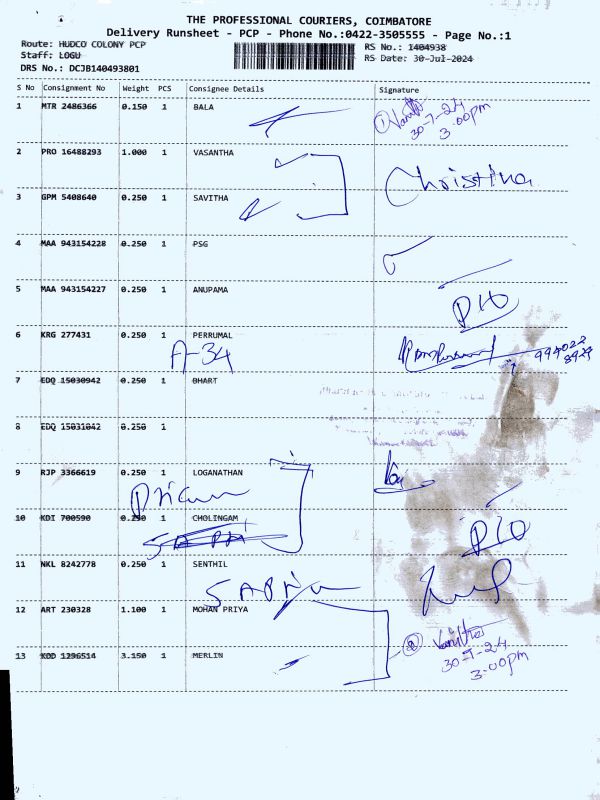 THE PROFESSIONAL COURIERS, COIMBATORE
Delivery Runsheet - PCP - Phone No.:0422-3505555 - Page No.:1
Route: HUDCO COLONY PCP
Staff: LOGU
DRS No.: DCJB140493801
RS No.: 1404938
RS Date: 30-Jul-2024
S No Consignment No Weight PCS Consignee Details Signature
1 MTR 2486366 0.150 1 BALA
30-7-24
3.00pm
2 PRO 16488293 1.000 1 VASANTHA
Christina
3 GPM 5408640 0.250 1 SAVITHA
4 MAA 943154228 0.250 1 PSG
5 MAA 943154227 0.250 1 ANUPAMA
6 KRG 277431 0.250 1 PERRUMAL
A-34
7 EDQ 15030942 0.250 1 BHART
8 EDQ 15031042 0.250 1
9 RJP 3366619 0.250 1 LOGANATHAN
10 KDI 700590 0.250 1 CHOLINGAM
11 NKL 8242778 0.250 1 SENTHIL
12 ART 230328 1.100 1 MOHAN PRIYA
13 KOD 1296514 3.150 1 MERLIN
30-7-24
3.00pm